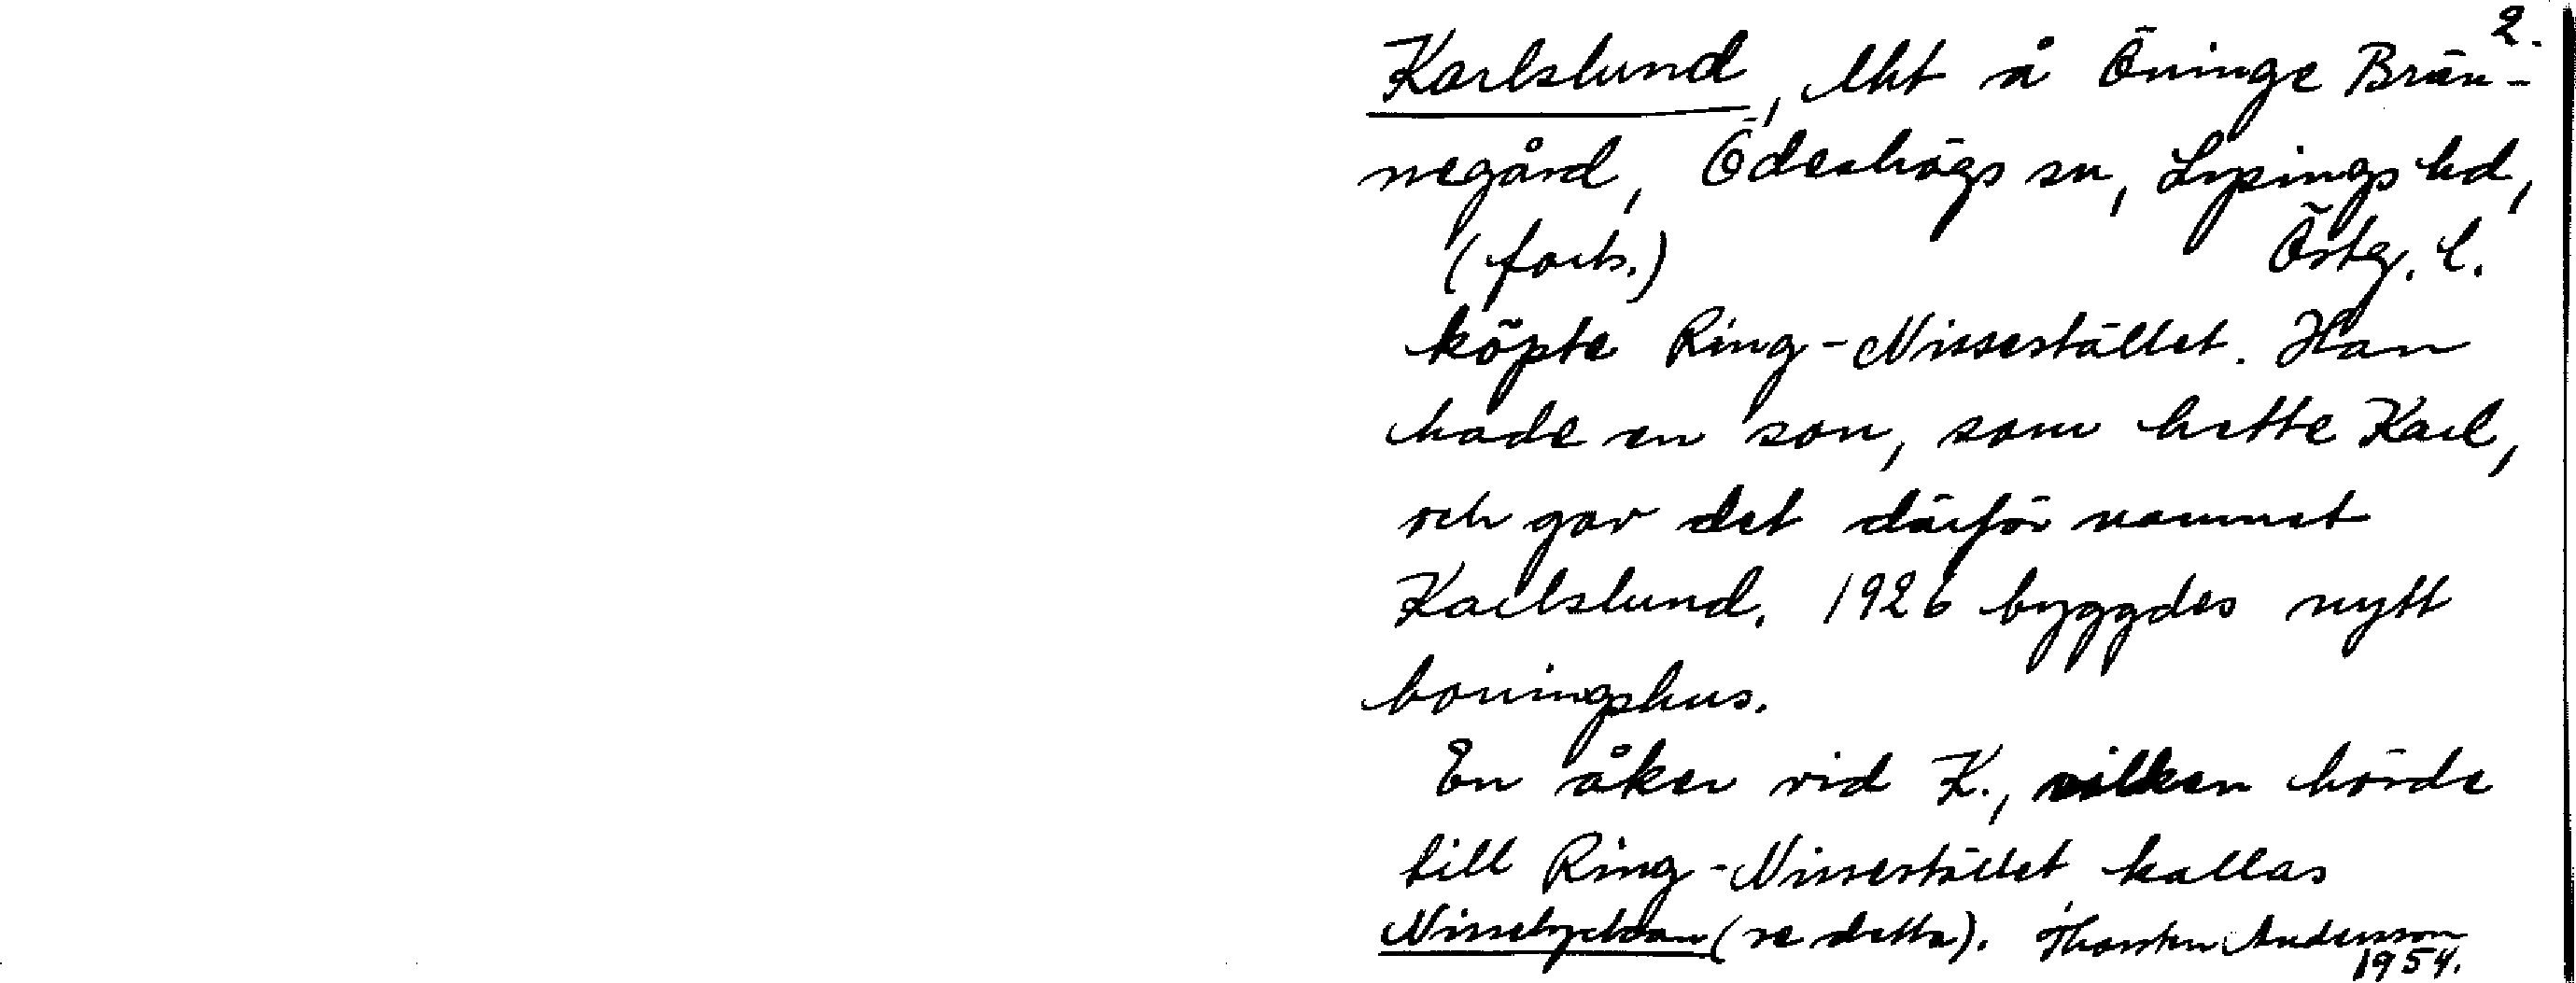 2.
Karlslund, lht å Öninge Brän-
negård, Ödeshögs sn, Lysings hd,
(forts.) Östg. l.
köpte Ring-Nissestället. Han
hade en son, som hette Karl,
och gav det därför namnet
Karlslund. 1926 byggdes nytt
boningshus.
En åker vid K., vilken hörde
till Ring-Nissestället kallas
Nisselyckan (se detta). Thorsten Andersson
1954.